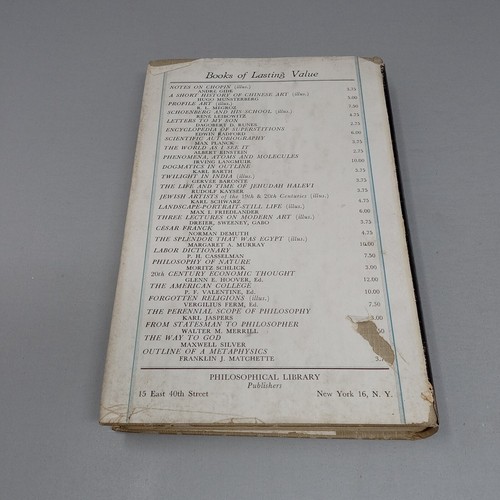 Books of Lasting Value
NOTES ON CHOPIN (illus.)
ANDRE GIDE 3.75
A SHORT HISTORY OF CHINESE ART (illus.)
HUGO MUNSTERBERG 5.00
PROFILE ART (illus.)
R. L. MEGROZ
SCHOENBERG AND HIS SCHOOL (illus.)
RENE LEIBOWITZ 4.75
LETTERS TO MY SON
DAGOBERT D. RUNES 2.75
ENCYCLOPEDIA OF SUPERSTITIONS
EDWIN RADFORD
SCIENTIFIC AUTOBIOGRAPHY
MAX PLANCK 3.75
THE WORLD AS I SEE IT
ALBERT EINSTEIN 2.75
PHENOMENA, ATOMS AND MOLECULES
IRVING LANGMUIR 10.00
DOGMATICS IN OUTLINE
KARL BARTH 3.75
TWILIGHT IN INDIA (illus.)
GERVEE BARONTE 3.75
THE LIFE AND TIME OF JEHUDAH HALEVI
RUDOLF KAYSER 3.75
JEWISH ARTISTS of the 19th & 20th Centuries (illus.)
KARL SCHWARZ 4.75
LANDSCAPE-PORTRAIT-STILL LIFE (illus.)
MAX L. FRIEDLANDER 6.00
THREE LECTURES ON MODERN ART (illus.)
DREIER, SWEENEY, GABO 3.75
CESAR FRANCK
NORMAN DEMUTH 4.75
THE SPLENDOR THAT WAS EGYPT (illus.)
MARGARET A. MURRAY 10.00
LABOR DICTIONARY
P. H. CASSELMAN 7.50
PHILOSOPHY OF NATURE
MORITZ SCHLICK 3.00
20th CENTURY ECONOMIC THOUGHT
GLENN E. HOOVER, Ed. 12.00
THE AMERICAN COLLEGE
P. F. VALENTINE, Ed. 10.00
FORGOTTEN RELIGIONS (illus.)
VERGILIUS FERM, Ed. 7.50
THE PERENNIAL SCOPE OF PHILOSOPHY
KARL JASPERS 3.00
FROM STATESMAN TO PHILOSOPHER
WALTER M. MERRILL
THE WAY TO GOD
MAXWELL SILVER
OUTLINE OF A METAPHYSICS
FRANKLIN J. MATCHETTE
PHILOSOPHICAL LIBRARY
Publishers
15 East 40th Street New York 16, N. Y.